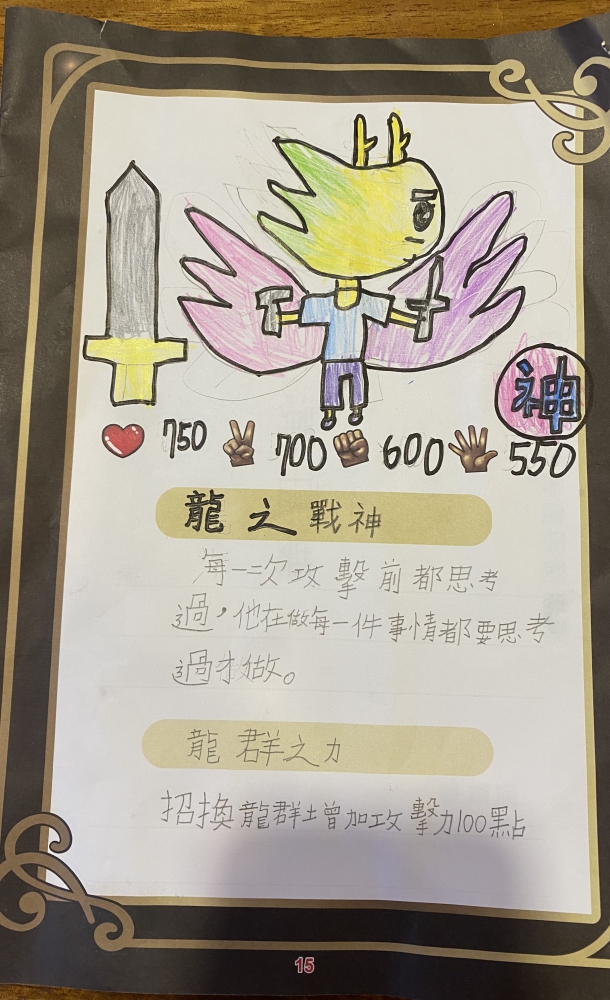 神
750 700 600 550
龍之戰神
每一次攻擊前都思考
過，他在做每一件事情都要思考
過才做。
龍群之力
招換龍群增加攻擊力100點
15